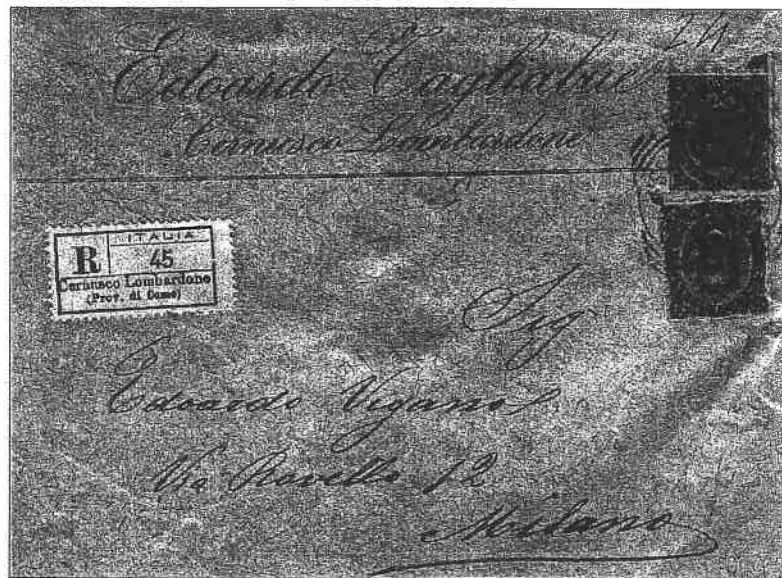 24
Edoardo Tagliabue
Cernusco Lombardone
ITALIA
R 45
Cernusco Lombardone
(Prov. di Como)
Sig
Edoardo Viganò
Via Rovello 12
Milano